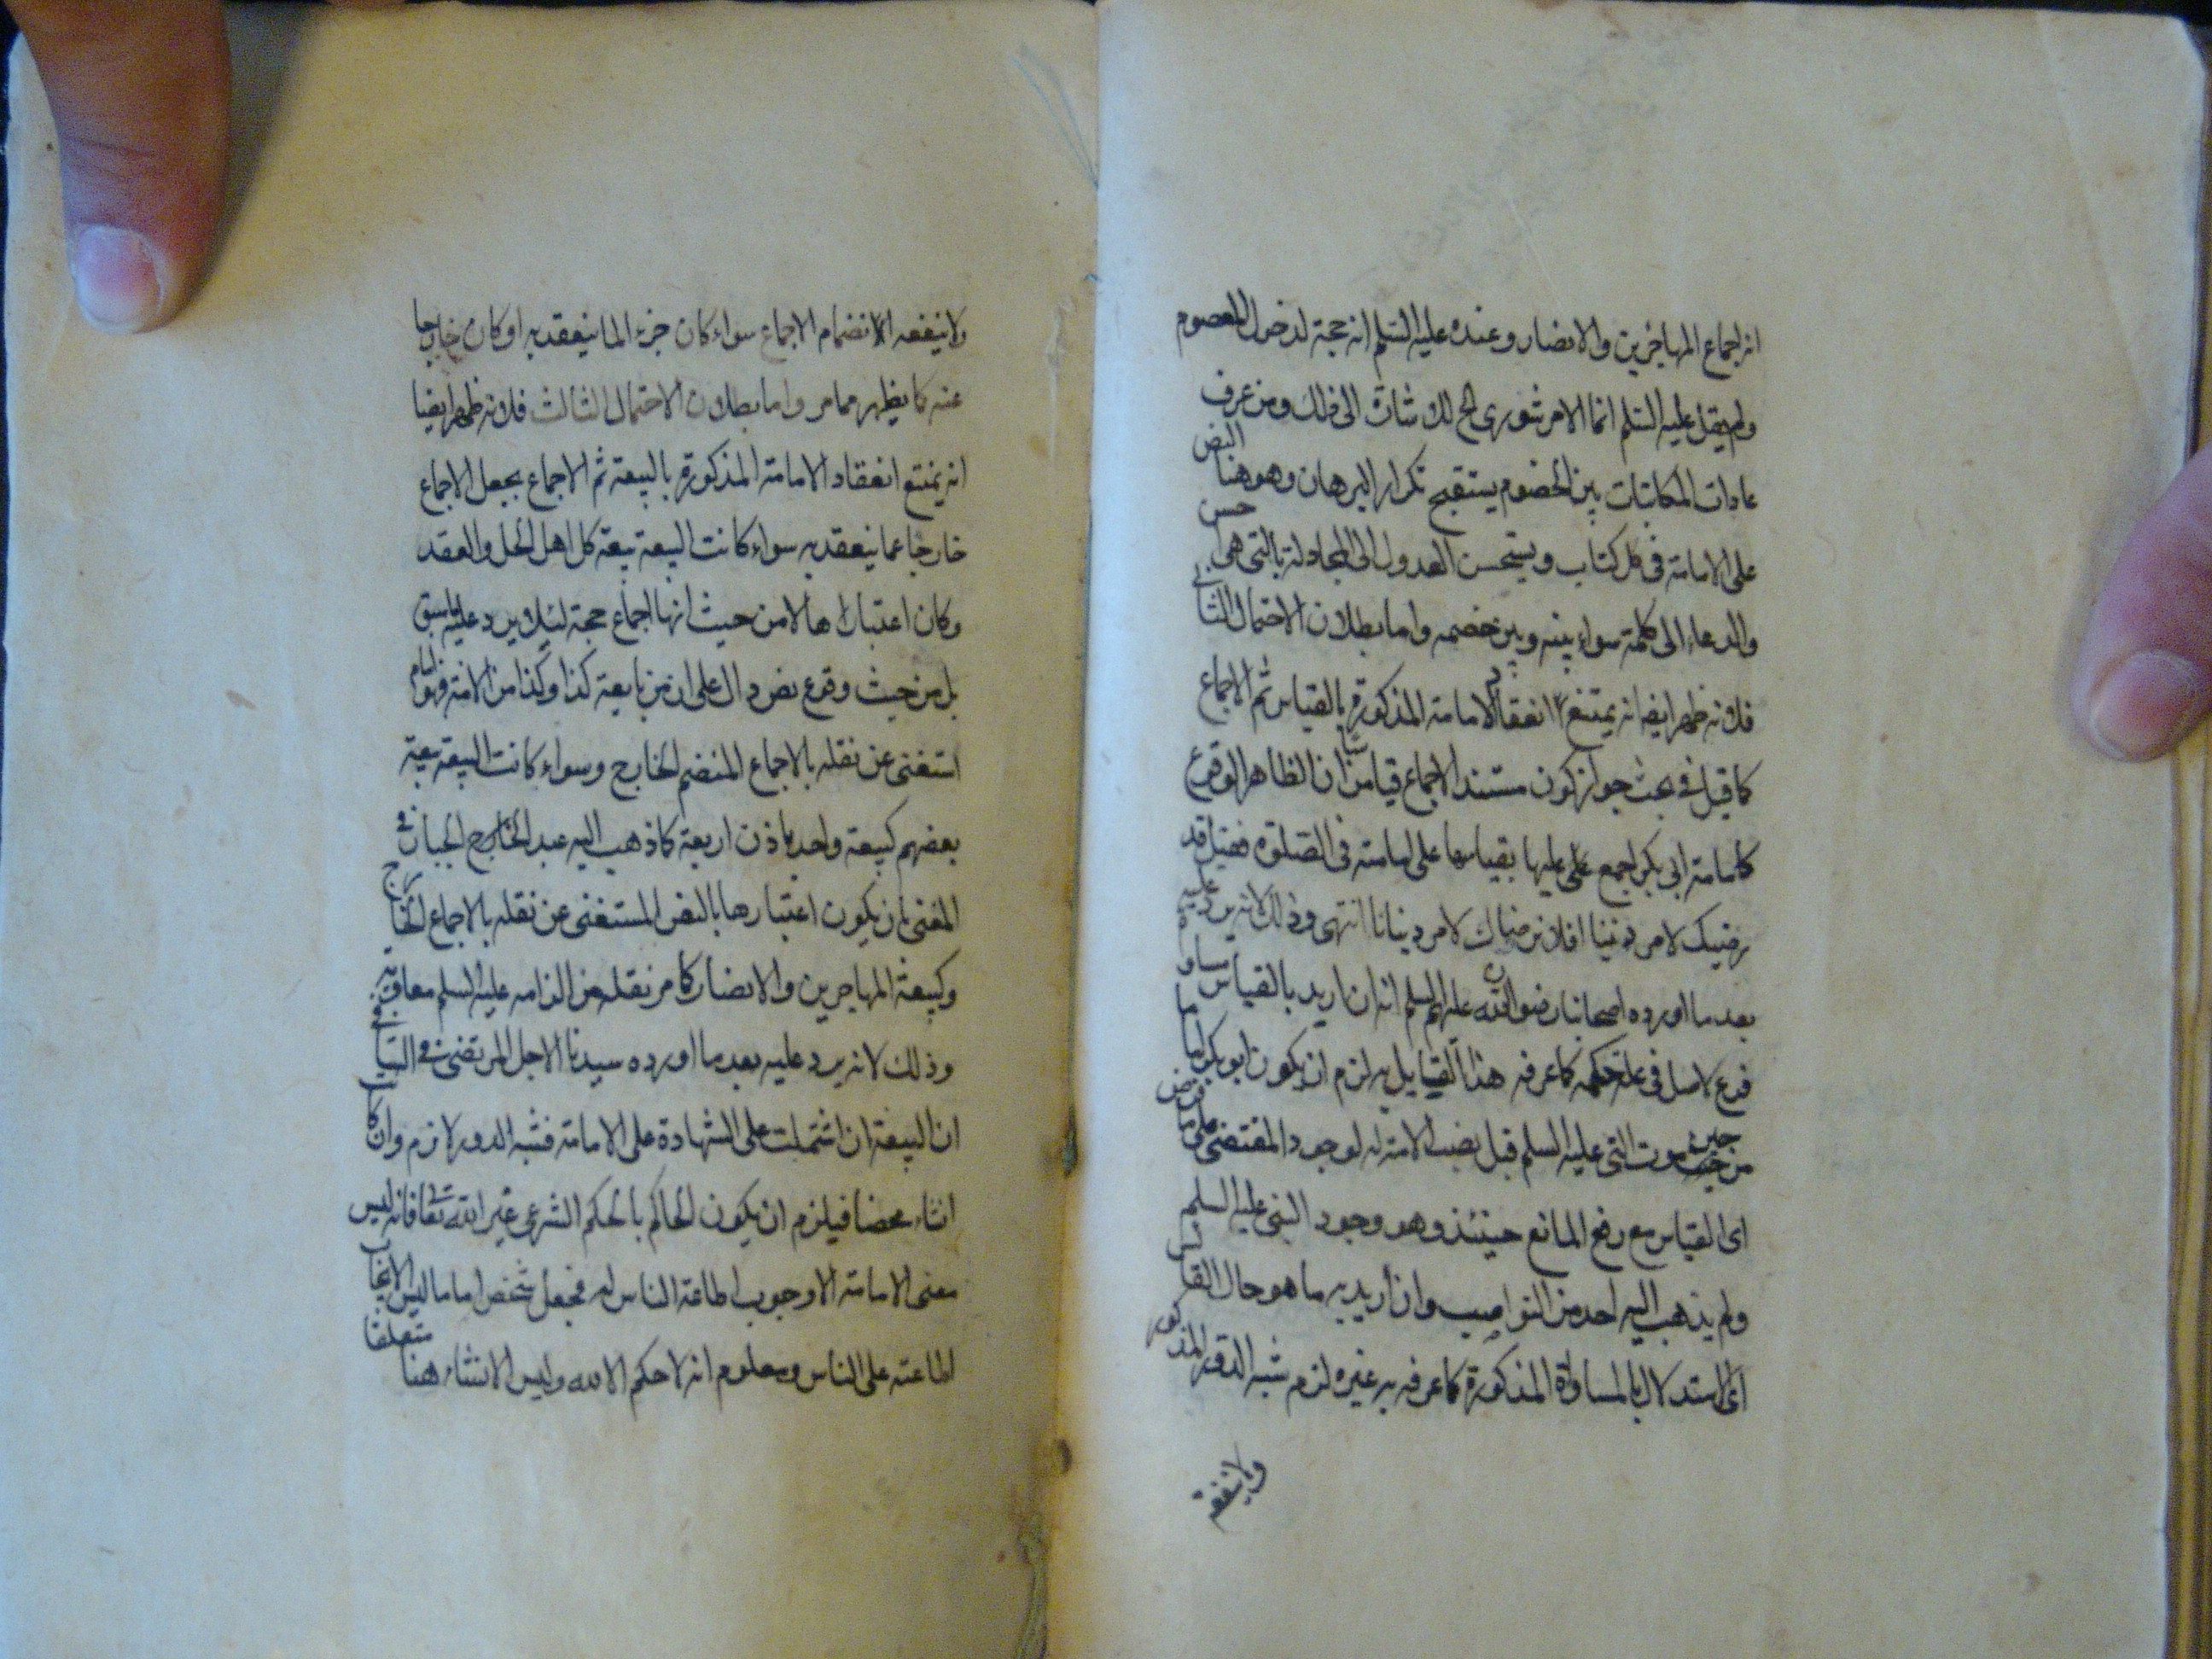 انه اجماع المهاجرين والانصار وعنده عليه السلم انه حجة لدخول المعصوم
ولم يقل عليه السلم انما الامر شورى الخ لك شارة الى ذلك ومن عرف
عادات المكاتبات بين الخصوم يستقبح تكرار البرهان وهو هنا النص
على الامامة في كل كتاب ويستحسن العدول الى المجادلة بالتي هي احسن
والدعاء الى كلمة سواء بينه وبين خصمه واما بطلان الاحتمال الثاني
فلانه ظهر ايضا انه يمتنع انعقاد الامامة المذكورة بالقياس ثم الاجماع
كما قيل في بحث جواز كون مستند الاجماع قياسا من ان الظاهر الوقوع
كامامة ابي بكر اجمع على عليها بقياسها على امامته في الصلوة فقيل قد
رضيك لامر ديننا افلا نرضاك لامر دنيانا انتهى وذلك لانه يرد عليه
بعد ما اورده اصحابنا رضوان الله عليهم انه ان اريد بالقياس مساواة
فرع لاصل في علة حكمه كما عرفه هذا القايل به لزم ان يكون ابو بكر اماما
من حين موت النبي عليه السلم قبل نصب الامة له لوجود المقتضى على ما فرض
اى القياس مع رفع المانع حينئذ وهو وجود النبى عليه السلم
ولم يذهب اليه احد من النواصب وان اريد به ما هو حال القائس
اى الاستدلال بالمساواة المذكورة كما عرفه به غيره لزم شبه الدور المذكور
ولا ينفعه
ولا ينفعه الا انضمام الاجماع سواء كان جزء لما ينعقد به او كان خارجا
عنه كما يظهر مما مر واما بطلان الاحتمال الثالث فلانه ظهر ايضا
انه يمتنع انعقاد الامامة المذكورة بالبيعة ثم الاجماع بجعل الاجماع
خارجا عما ينعقد به سواء كانت البيعة بيعة كل اهل الحل والعقد
وكان اعتبارها لا من حيث انها اجماع حجة لئلا يرد عليه ما سبق
بل من حيث وقوع نص دال على ان من بايعه كذا وكذا من الامة فهو امام
استغنى عن نقله بالاجماع المنضم الخارج وسواء كانت البيعة بيعة
بعضهم كبيعة واحد باذن اربعة كما ذهب اليه عبد الجبار في
المغنى بان يكون اعتبارها بالنص المستغنى عن نقله بالاجماع الخارج
وكبيعة المهاجرين والانصار كما مر نقله من الزامه عليه السلم معاوية به
وذلك لانه يرد عليه بعد ما اورده سيدنا الاجل المرتضى في الشافي
ان البيعة ان اشتملت على الشهادة على الامامة فشبه الدور لازم وان كان
انشاء محضا فيلزم ان يكون الحاكم بالحكم الشرعى غير الله تعالى فانه ليس
معنى الامامة الا وجوب اطاعة الناس له فجعل شخص اماما ليس الا ايجاب
اطاعته على الناس ومعلوم انه لا حكم الا لله وليس الانشاء هنا متعلقا